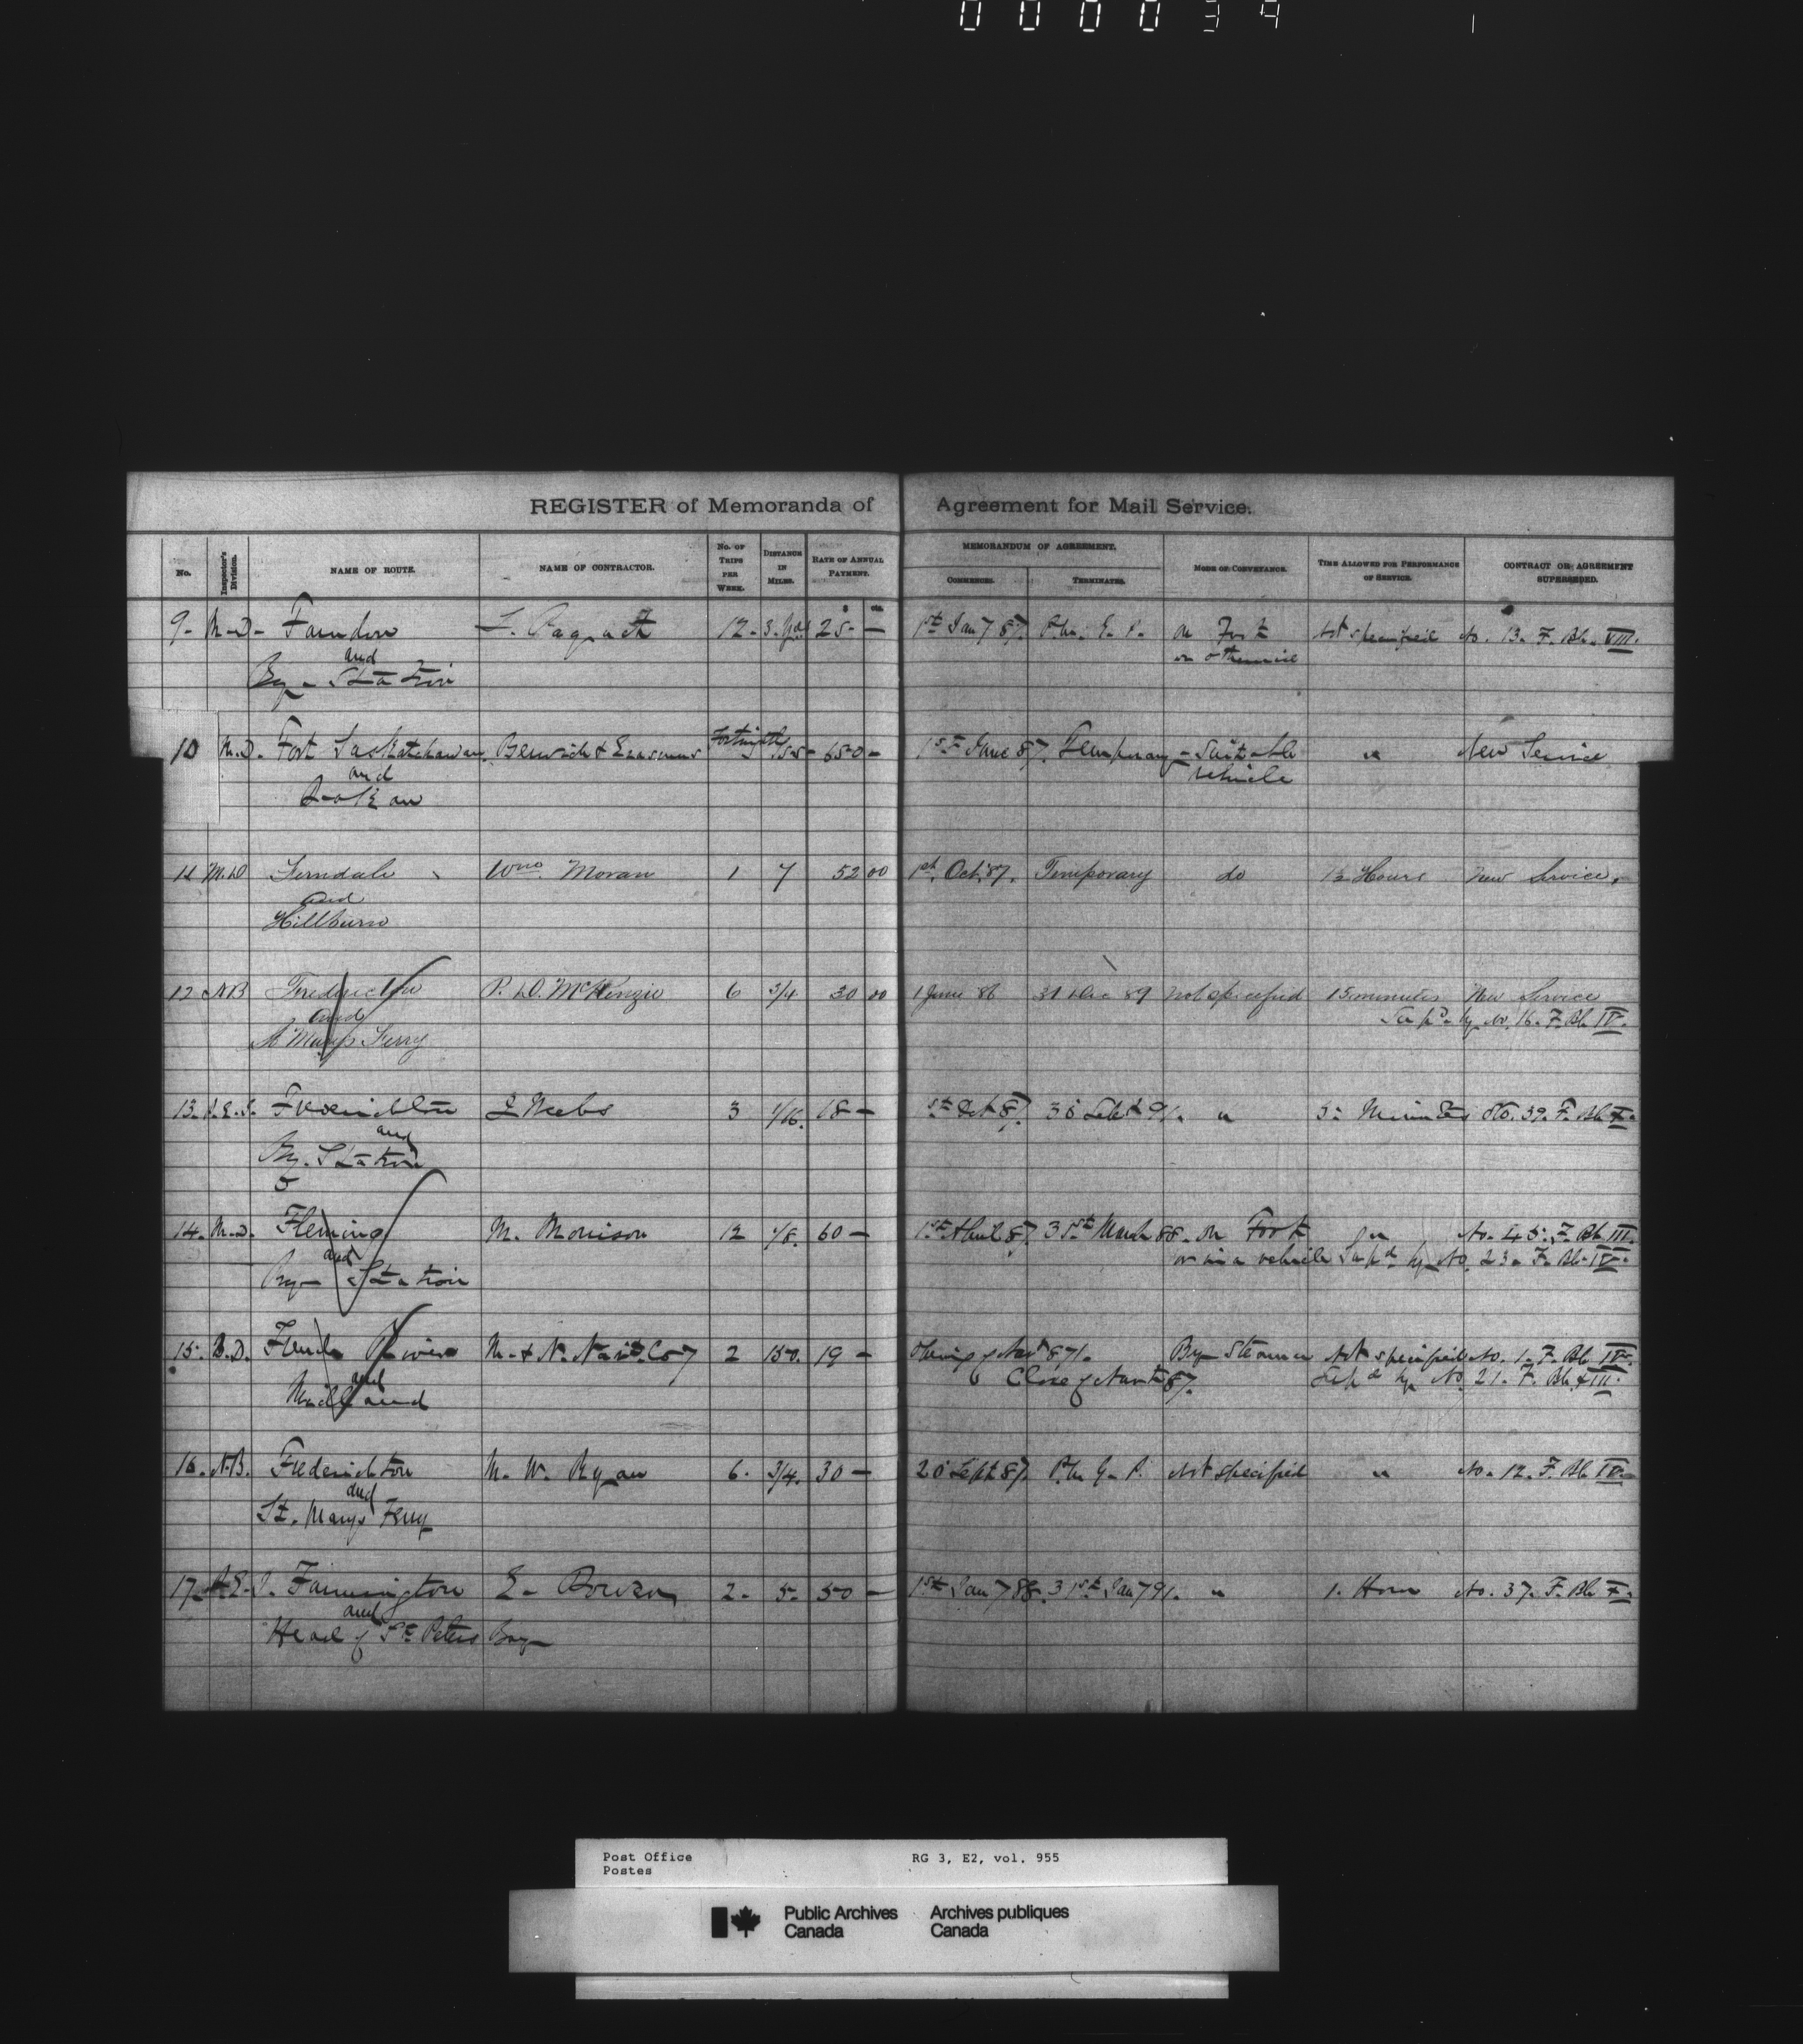 000034
REGISTER of Memoranda of Agreement for Mail Service.
No. Inspector's Division. NAME OF ROUTE. NAME OF CONTRACTOR. No. OF TRIPS PER WEEK. DISTANCE IN MILES. RATE OF ANNUAL PAYMENT. MEMORANDUM OF AGREEMENT. COMMENCES. TERMINATES. MODE OF CONVEYANCE. TIME ALLOWED FOR PERFORMANCE OF SERVICE. CONTRACT OR AGREEMENT SUPERSEDED.
$ cts.
9- M-D- 12- 25- — 1st Jany 87. on Foot Not specified No. 13. F. Bk. VIII.
and or otherwise
Ry- Station
10 M.D. Fort Saskatchewan 650 — 1st June 87. Temporary - Suitable " New Service
and vehicle
11 M.D Ferndale Wm. Moran 1 7 52 00 1st. Oct. 87. Temporary do 1½ Hours New Service.
and
Hillburn
12 NB Fredericton P. D. McKenzie 6 3/4 30 00 1 June 86 31 Dec 89 not specified 15 minutes New Service
and Supd. by No. 16. F. Bk IV.
St Marys Ferry
13. P.E.I. 3 1/16. 18 — 1st Oct 87. 30 Sept 91. " 5- Minutes No. 39. F. Bk X.
and
Ry. Station
14. M.D. Fleming M. Morrison 12 1/8. 60 — 1st April 87. 31st March 88. on Foot " No. 45. F. Bk III.
and or in a vehicle Supd by No. 23. F. Bk. IV.
Ry- Station
15. B.D. French River M. & N. Navt. Coy 2 150. 19 — 87. By Steamer Not specified No. 1. F. Bk IV.
and Close of Navtn 87. Supd by No 21. F. Bk
Midland
16. N.B. Fredericton M. W. Ryan 6. 3/4. 30 — 20 Sept 87. Not specified " No. 12. F. Bk IV.
and
St. Marys Ferry
17. P.E.I. Farmington E. 2. 5. 50 — 1st Jany 88. 31st Jany 91. " 1. Hour No. 37. F. Bk X.
and
Head of St Peters Bay
Post Office RG 3, E2, vol. 955
Postes
Public Archives Archives publiques
Canada Canada